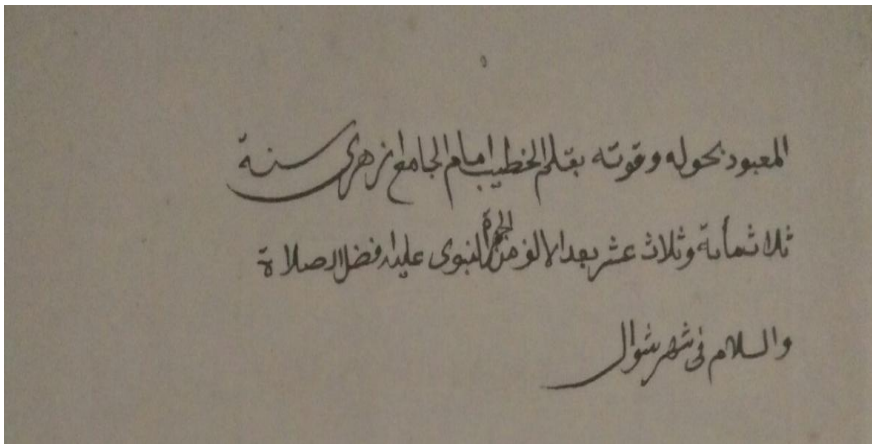 المعبود بحوله وقوته بقلم الخطيب امام الجامع ازهرى سنة
ثلاثمأىة وثلاث عشر بعد الالف من الهجرة النبوى عليه افضل الصلاة
والسلام فى شهر شوال